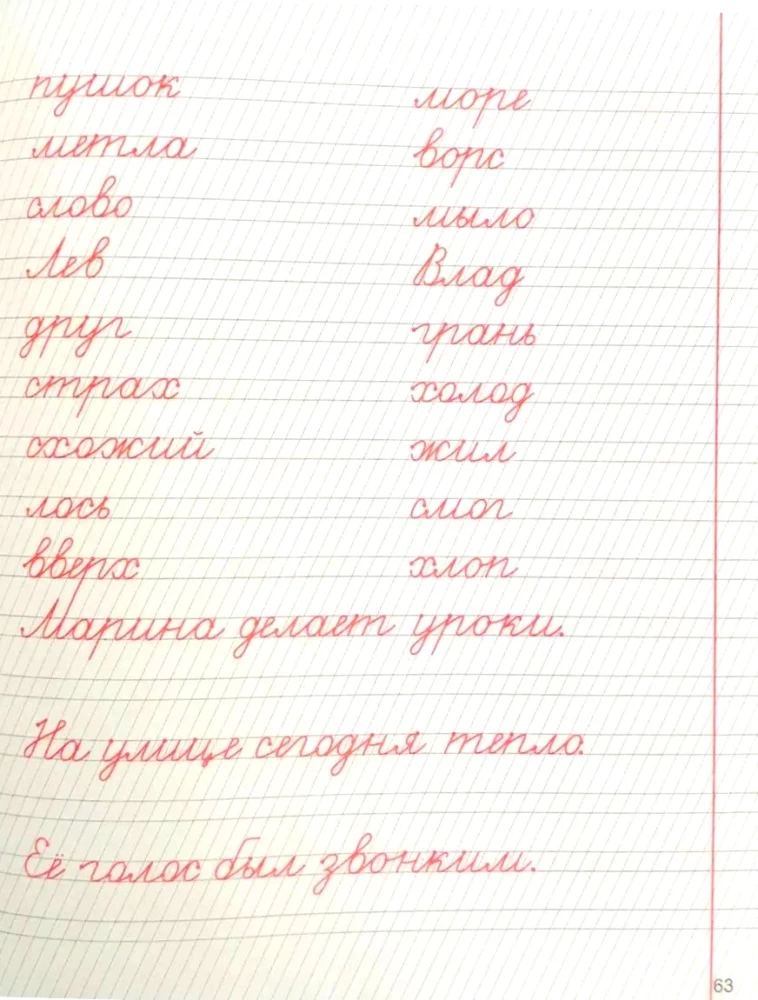 пушок море
метла ворс
слово мыло
Лев Влад
друг грань
страх холод
схожий жил
лось смог
вверх хлоп
Марина делает уроки.
На улице сегодня тепло.
Её голос был звонким.
63